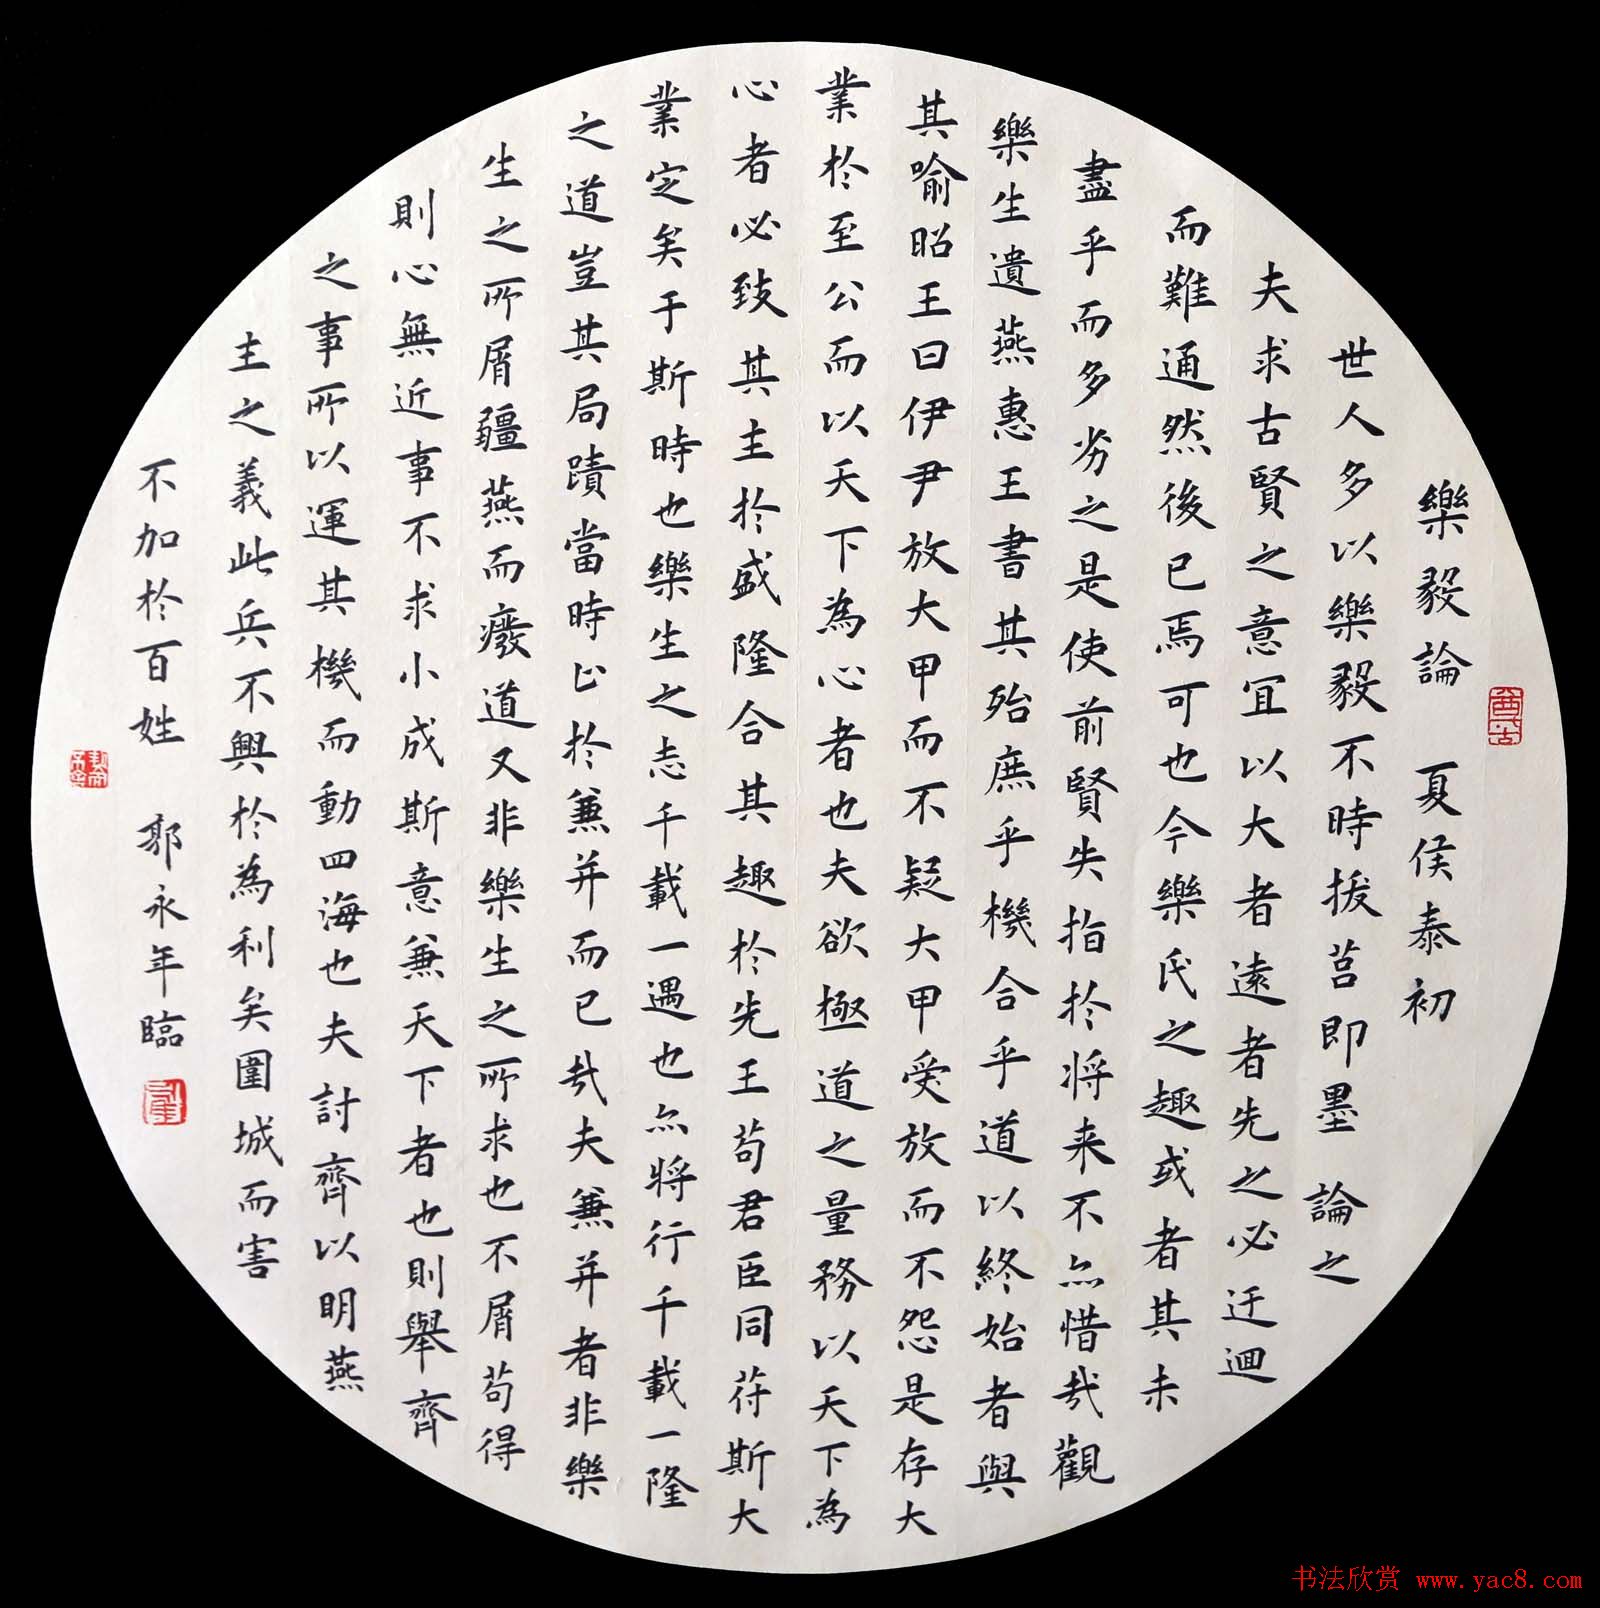 樂毅論 夏侯泰初
世人多以樂毅不時拔莒即墨論之
夫求古賢之意宜以大者遠者先之必迂迴
而難通然後已焉可也今樂氏之趣或者其未
盡乎而多劣之是使前賢失指於將来不亦惜哉觀
樂生遺燕惠王書其殆庶乎機合乎道以終始者與
其喻昭王曰伊尹放大甲而不疑大甲受放而不怨是存大
業於至公而以天下為心者也夫欲極道之量務以天下為
心者必致其主於盛隆合其趣於先王苟君臣同苻斯大
業定矣于斯時也樂生之志千載一遇也亦將行千載一隆
之道豈其局蹟當時止於兼并而已哉夫兼并者非樂
生之所屑彊燕而廢道又非樂生之所求也不屑苟得
則心無近事不求小成斯意兼天下者也則舉齊
之事所以運其機而動四海也夫討齊以明燕
主之義此兵不興於為利矣圍城而害
不加於百姓 郭永年臨
书法欣赏 www.yac8.com